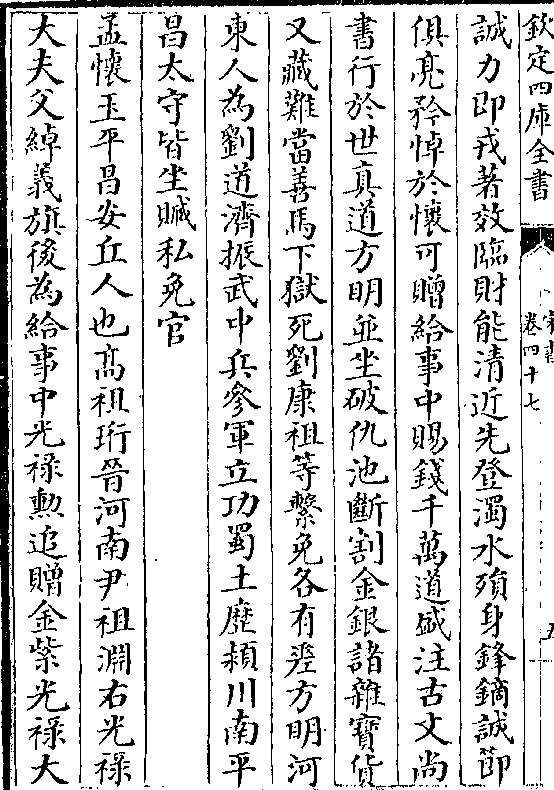 欽定四庫全書
宋書
卷四十七
五
誠力即戎著效臨財能清近先登濁水殞身鋒鏑誠節
俱亮矜悼於懷可贈給事中賜錢千萬道盛注古文尚
書行於世真道方明並坐破仇池斷割金銀諸雜寶貨
又藏難當善馬下獄死劉康祖等繫免各有差方明河
東人為劉道濟振武中兵參軍立功蜀土歷潁川南平
昌太守皆坐贓私免官
孟懷玉平昌安丘人也髙祖珩晉河南尹祖淵右光祿
大夫父綽義旗後為給事中光祿勲追贈金紫光祿大